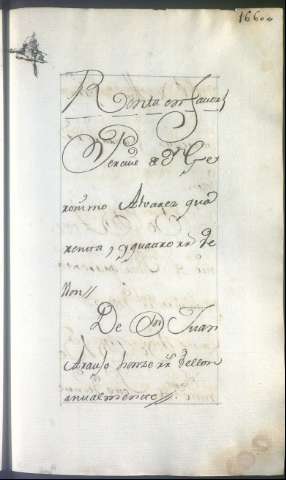 1660
Renta en favor
Percive de Dn Ge
ronimo Alvarez qua
renta, y quatro rs de
llon//
De Dn Juan
Araujo honze rs Vellon
anualmente//.